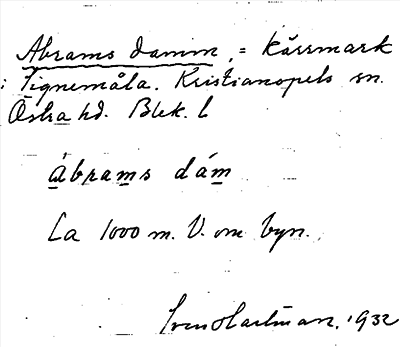 Abrams damm, = kärrmark
i Tignemåla. Kristianopels sn.
Östra hd. Blek. l
ábrams dám
Ca 1000 m. V. om byn.
Sven Hartman, 1932